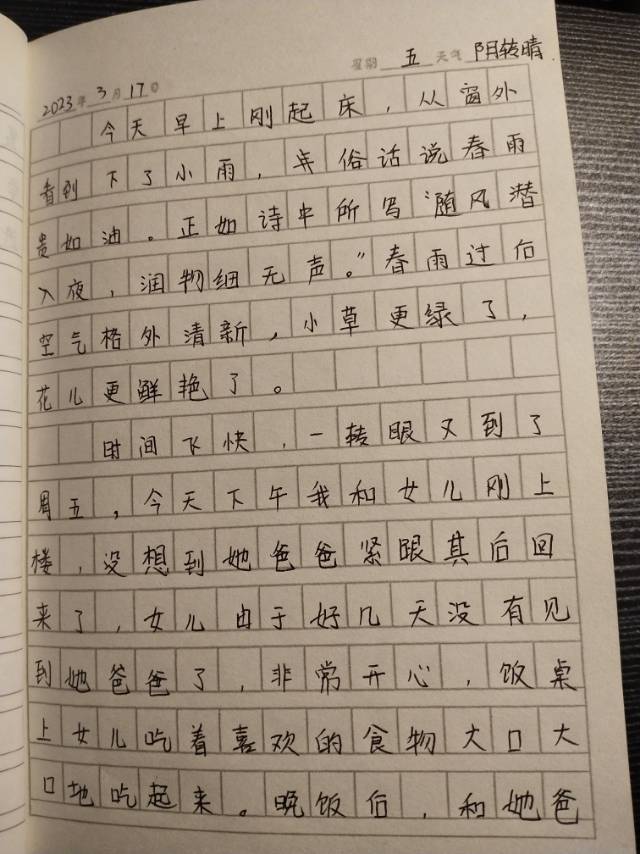 2023年3月17日 星期 五 天气 阴转晴
今天早上刚起床，从窗外
看到下了小雨，俗话说春雨
贵如油。正如诗中所写“随风潜
入夜，润物细无声。”春雨过后
空气格外清新，小草更绿了，
花儿更鲜艳了。
时间飞快，一转眼又到了
周五，今天下午我和女儿刚上
楼，没想到她爸爸紧跟其后回
来了，女儿由于好几天没有见
到她爸爸了，非常开心，饭桌
上女儿吃着喜欢的食物大口大
口地吃起来。晚饭后，和她爸